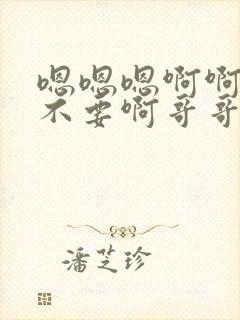 嗯嗯嗯啊啊
不要啊哥哥
潘芝珍